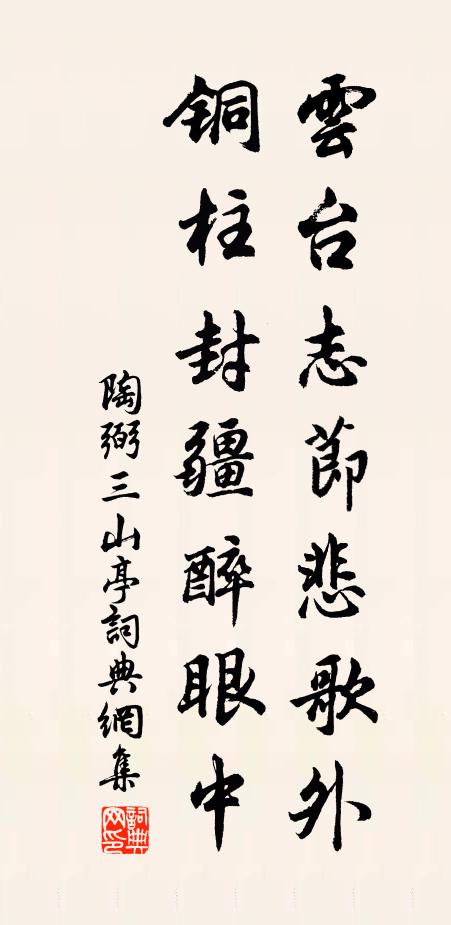 雲台志節悲歌外
銅柱封疆醉眼中
陶弼三山亭詞典網集
詞典网印